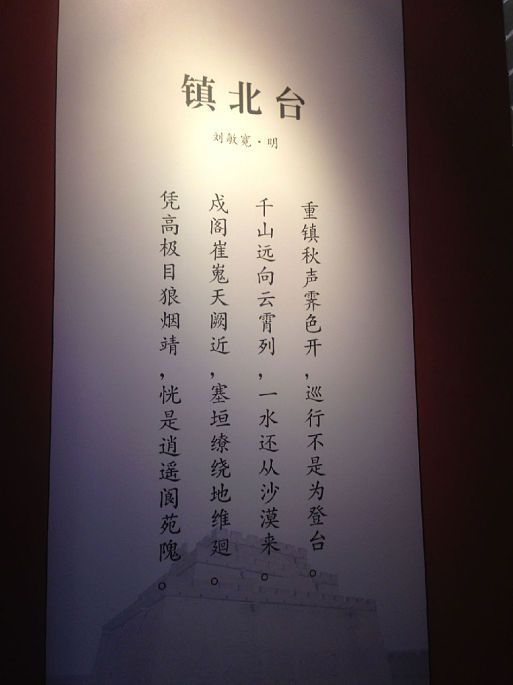 镇北台
刘敏宽·明
重镇秋声霁色开,巡行不是为登台。
千山远向云霄列,一水还从沙漠来。
戍阁崔嵬天阙近,塞垣缭绕地维廻。
凭高极目狼烟靖,恍是逍遥阆苑隗。